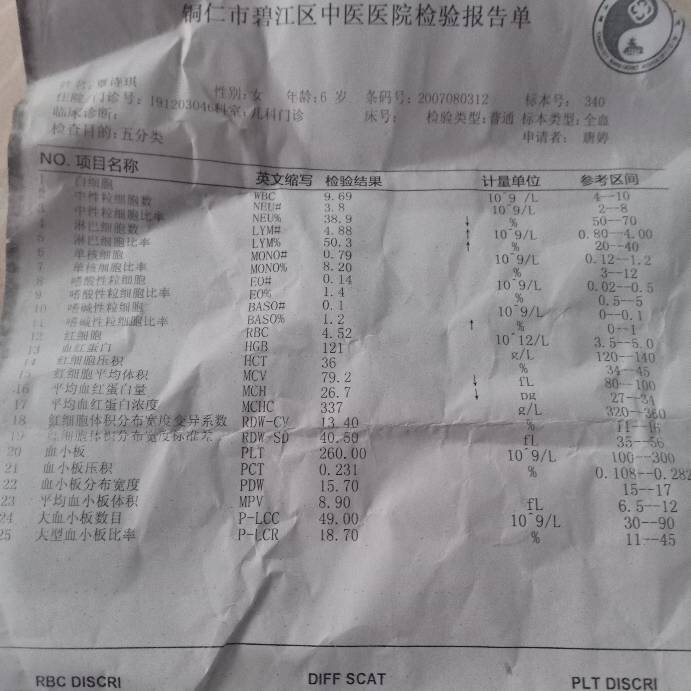 铜仁市碧江区中医医院检验报告单
姓名: 覃诗琪 性别: 女 年龄: 6 岁 条码号: 2007080312 标本号: 340
住院/门诊号: 191203046 科室: 儿科门诊 床号: 检验类型: 普通 标本类型: 全血
临床诊断: 申请者: 唐婷
检查目的: 五分类
NO. 项目名称 英文缩写 检验结果 计量单位 参考区间
白细胞 WBC 9.69 10^9 /L 4--10
中性粒细胞数 NEU# 3.8 10^9/L 2--8
中性粒细胞比率 NEU% 38.9 ↓ % 50--70
4 淋巴细胞数 LYM# 4.88 ↑ 10^9/L 0.80--4.00
5 淋巴细胞比率 LYM% 50.3 ↑ % 20--40
6 单核细胞 MONO# 0.79 10^9/L 0.12--1.2
7 单核细胞比率 MONO% 8.20 % 3--12
8 嗜酸性粒细胞 EO# 0.14 10^9/L 0.02--0.5
9 嗜酸性粒细胞比率 EO% 1.4 % 0.5--5
10 嗜碱性粒细胞 BASO# 0.1 10^9/L 0--0.1
11 嗜碱性粒细胞比率 BASO% 1.2 ↑ % 0--1
12 红细胞 RBC 4.52 10^12/L 3.5--5.0
13 血红蛋白 HGB 121 g/L 120--140
14 红细胞压积 HCT 36 % 34--45
15 红细胞平均体积 MCV 79.2 ↓ fL 80--100
16 平均血红蛋白量 MCH 26.7 ↓ pg 27--34
17 平均血红蛋白浓度 MCHC 337 g/L 320--360
18 红细胞体积分布宽度变异系数 RDW-CV 13.40 % 11--16
19 红细胞体积分布宽度标准差 RDW-SD 40.50 fL 35--56
20 血小板 PLT 260.00 10^9/L 100--300
21 血小板压积 PCT 0.231 % 0.108--0.282
22 血小板分布宽度 PDW 15.70 15--17
23 平均血小板体积 MPV 8.90 fL 6.5--12
24 大血小板数目 P-LCC 49.00 10^9/L 30--90
25 大型血小板比率 P-LCR 18.70 % 11--45
RBC DISCRI DIFF SCAT PLT DISCRI